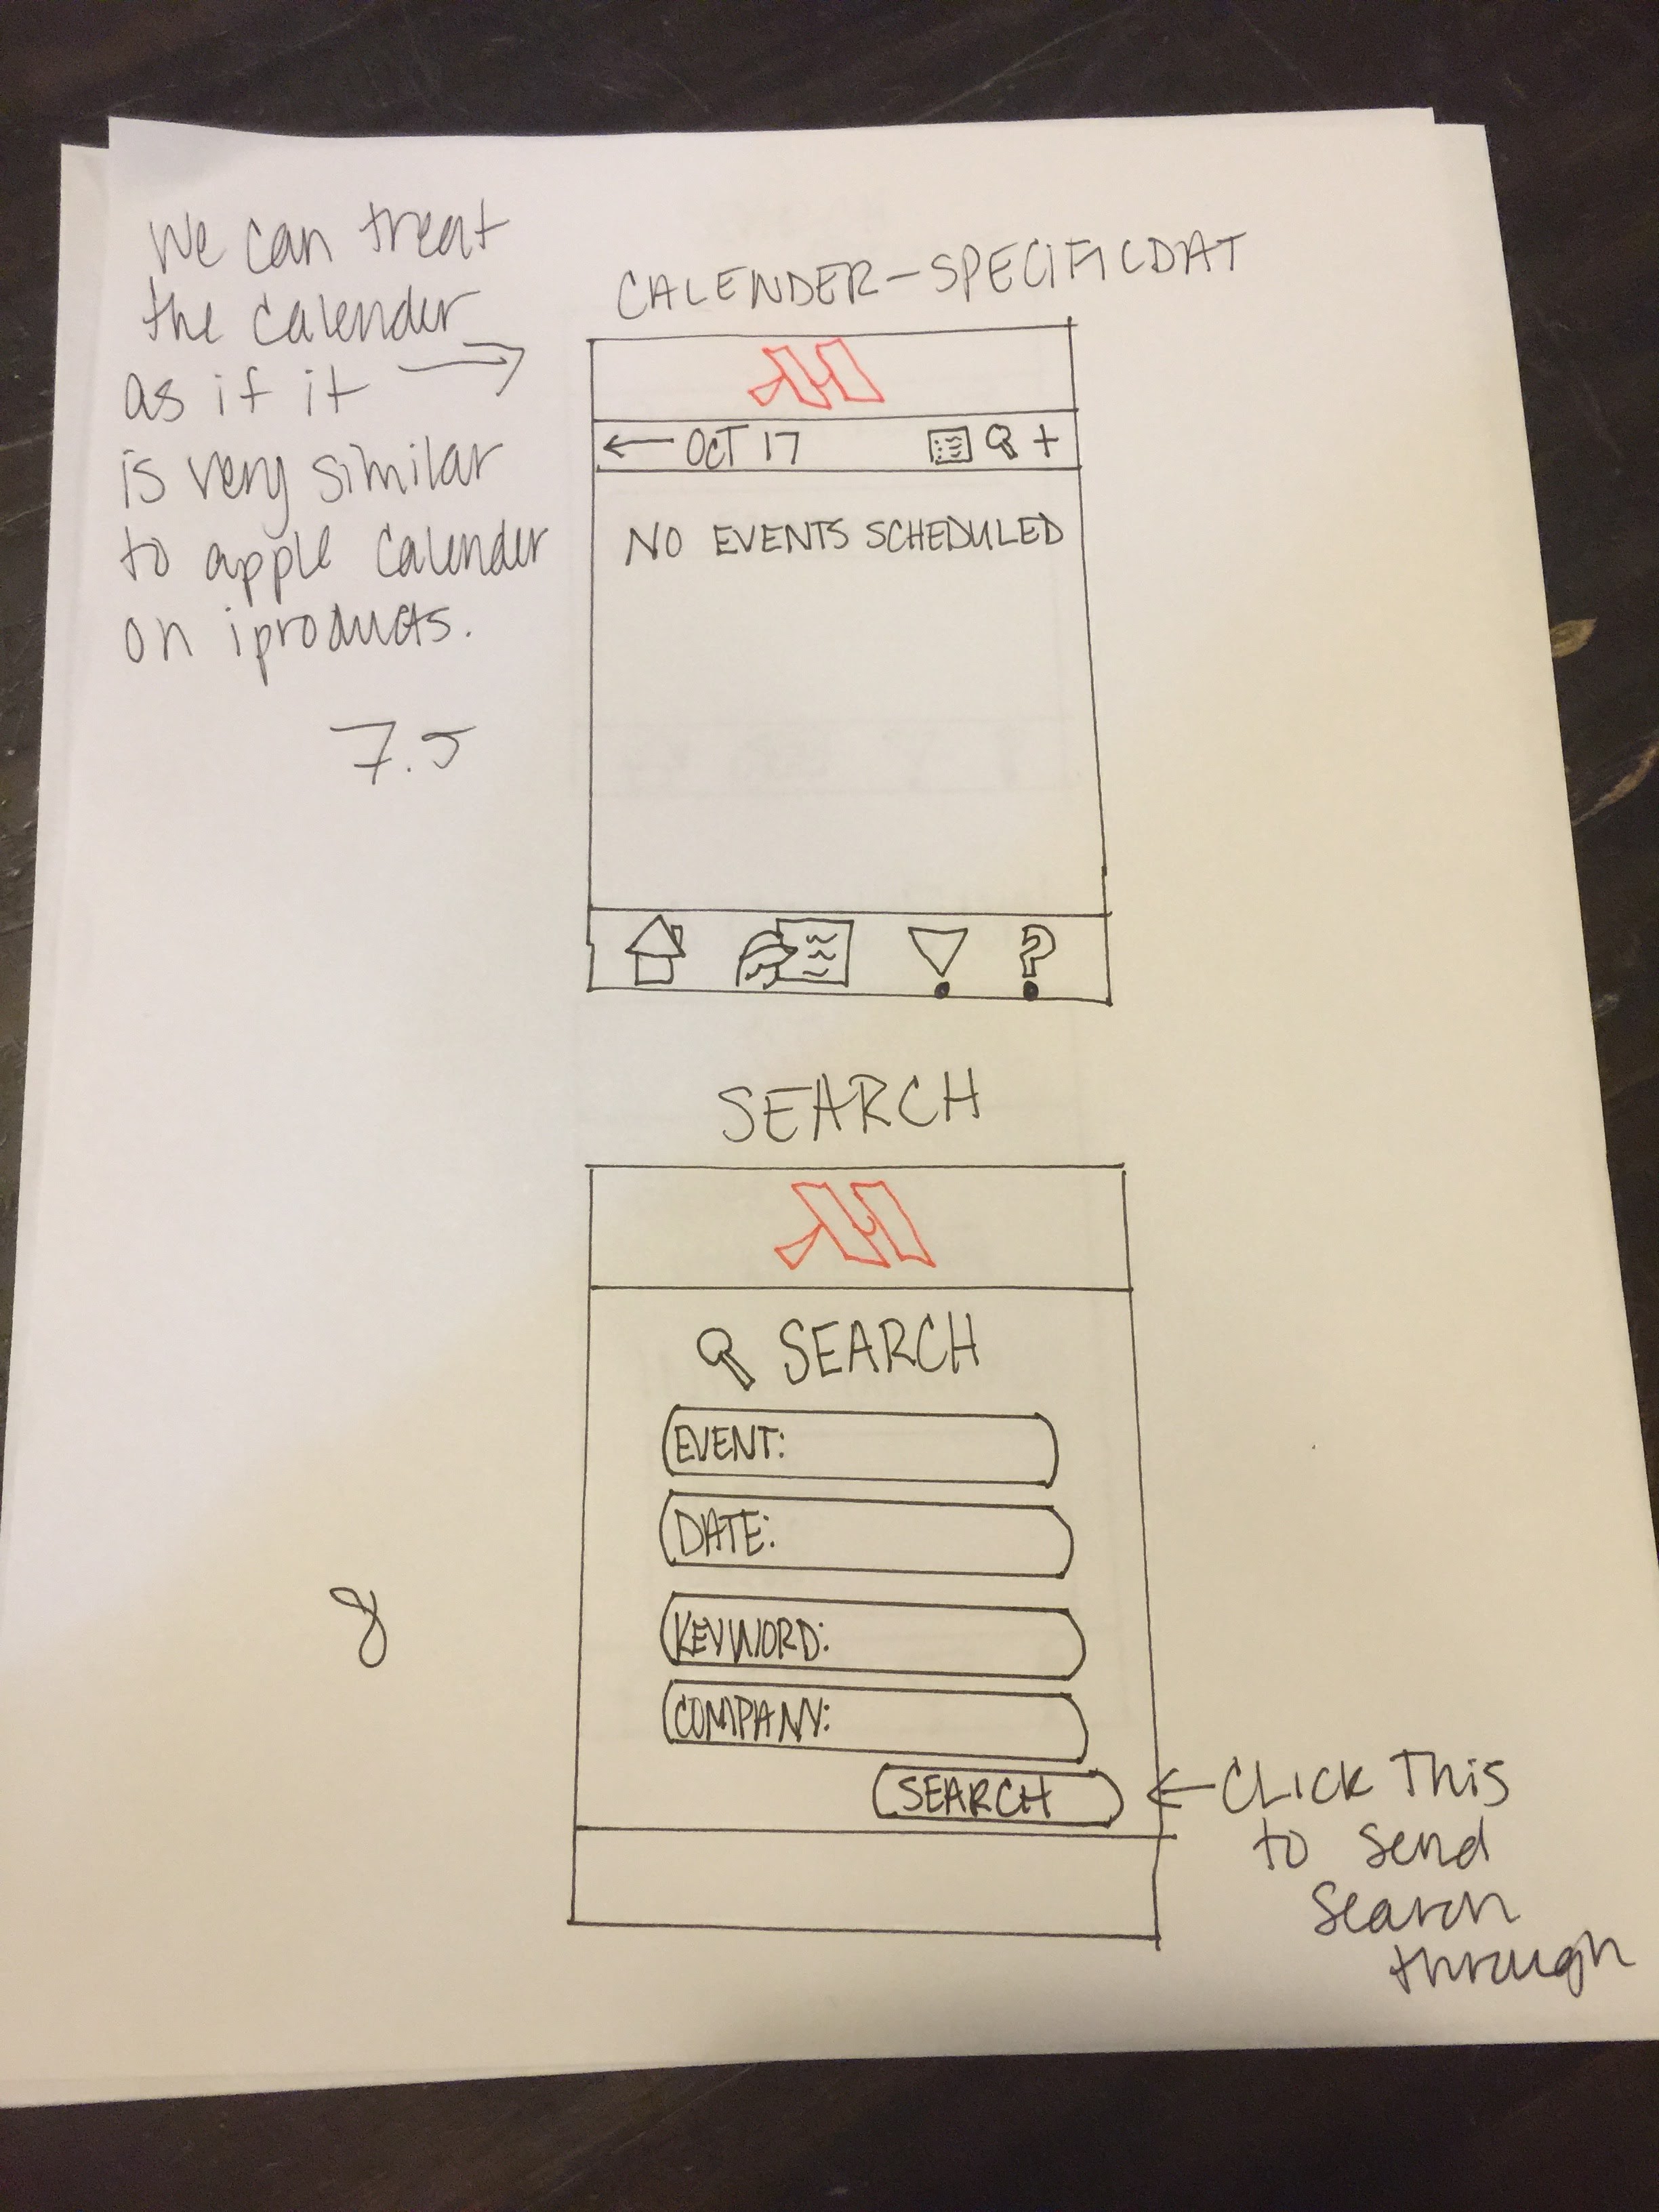 We can treat
the calender
as if it
is very similar
to apple calender
on iproducts.
7.5
CALENDER-SPECIFICDAT
OCT 17
NO EVENTS SCHEDULED
?
SEARCH
SEARCH
EVENT:
DATE:
KEYWORD:
COMPANY:
SEARCH
8
CLICK This
to send
search
through